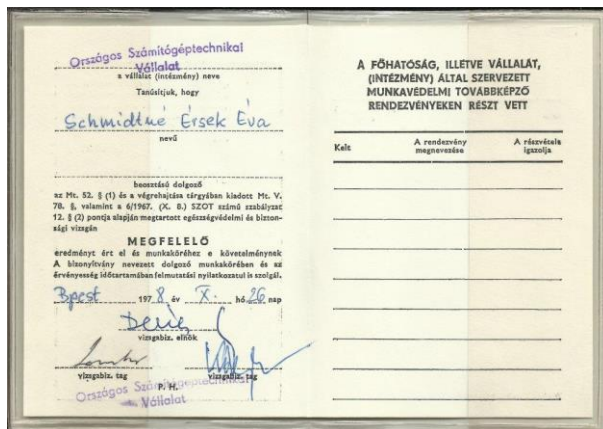 Országos Számítógéptechnikai
Vállalat
a vállalat (intézmény) neve
Tanúsítjuk, hogy
Schmidtné Érsek Éva
nevű
beosztású dolgozó
az Mt. 52. § (1) és a végrehajtása tárgyában kiadott Mt. V.
78. §, valamint a 6/1967. (X. 8.) SZOT számú szabályzat
12. § (2) pontja alapján megtartott egészségvédelmi és bizton-
sági vizsgán
MEGFELELŐ
eredményt ért el és munkaköréhez e követelménynek
A bizonyítvány nevezett dolgozó munkakörében és az
érvényesség időtartamában felmutatási nyilatkozatul is szolgál.
Bpest 1978 év X. hó 26 nap
vizsgabiz. elnök
vizsgabiz. tag vizsgabiz. tag
P. H.
Országos Számítógéptechnikai
Vállalat
A FŐHATÓSÁG, ILLETVE VÁLLALAT,
(INTÉZMÉNY) ÁLTAL SZERVEZETT
MUNKAVÉDELMI TOVÁBBKÉPZŐ
RENDEZVÉNYEKEN RÉSZT VETT
Kelt A rendezvény megnevezése A részvétele igazolja